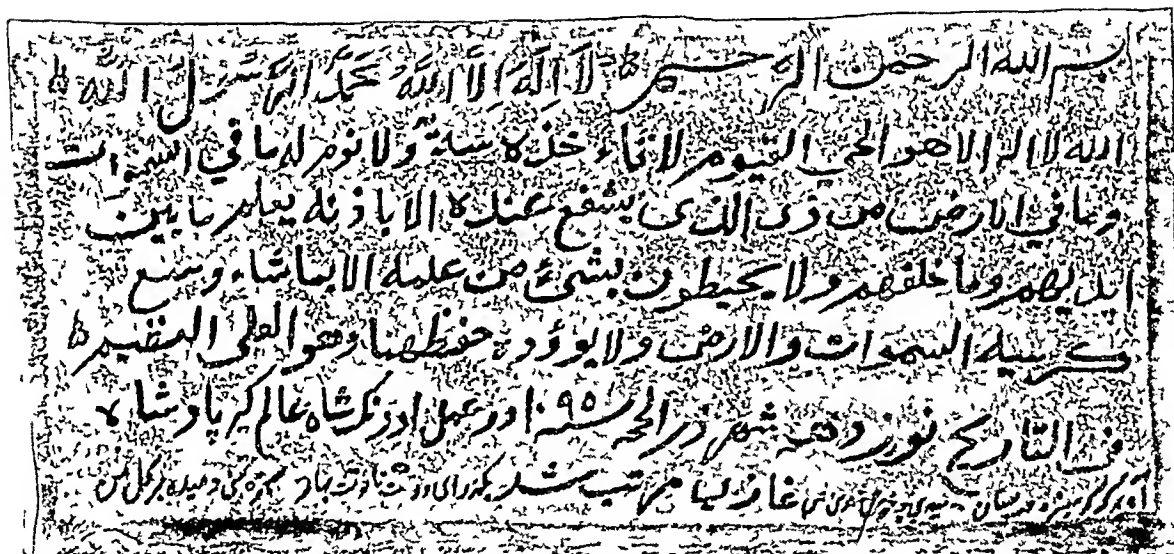 بسم الله الرحمن الرحیم لَا اِلَهَ اِلَّا اللَّهُ مُحَمَّدُ الرَّسُولُ اللَّه
الله لا اله الا هو الحی القیوم لا تاء خذه سنة ولا نوم له ما في السموات
وما في الارض من ذی الذی یشفع عنده الا باذنه یعلم ما بین
ایدیهم وما خلفهم ولا یحیطون بشیٔ من علمه الا بما شاء وسع
کرسیه السموات والارض ولا یوؤده حفظهما وهو العلی العظیم
فی التاریخ نوزدهم شهر ذی الحجه سنه ۱۰۹۵ در عمل اورنک شاه عالم کیر پادشاه
غازی مرتب شد